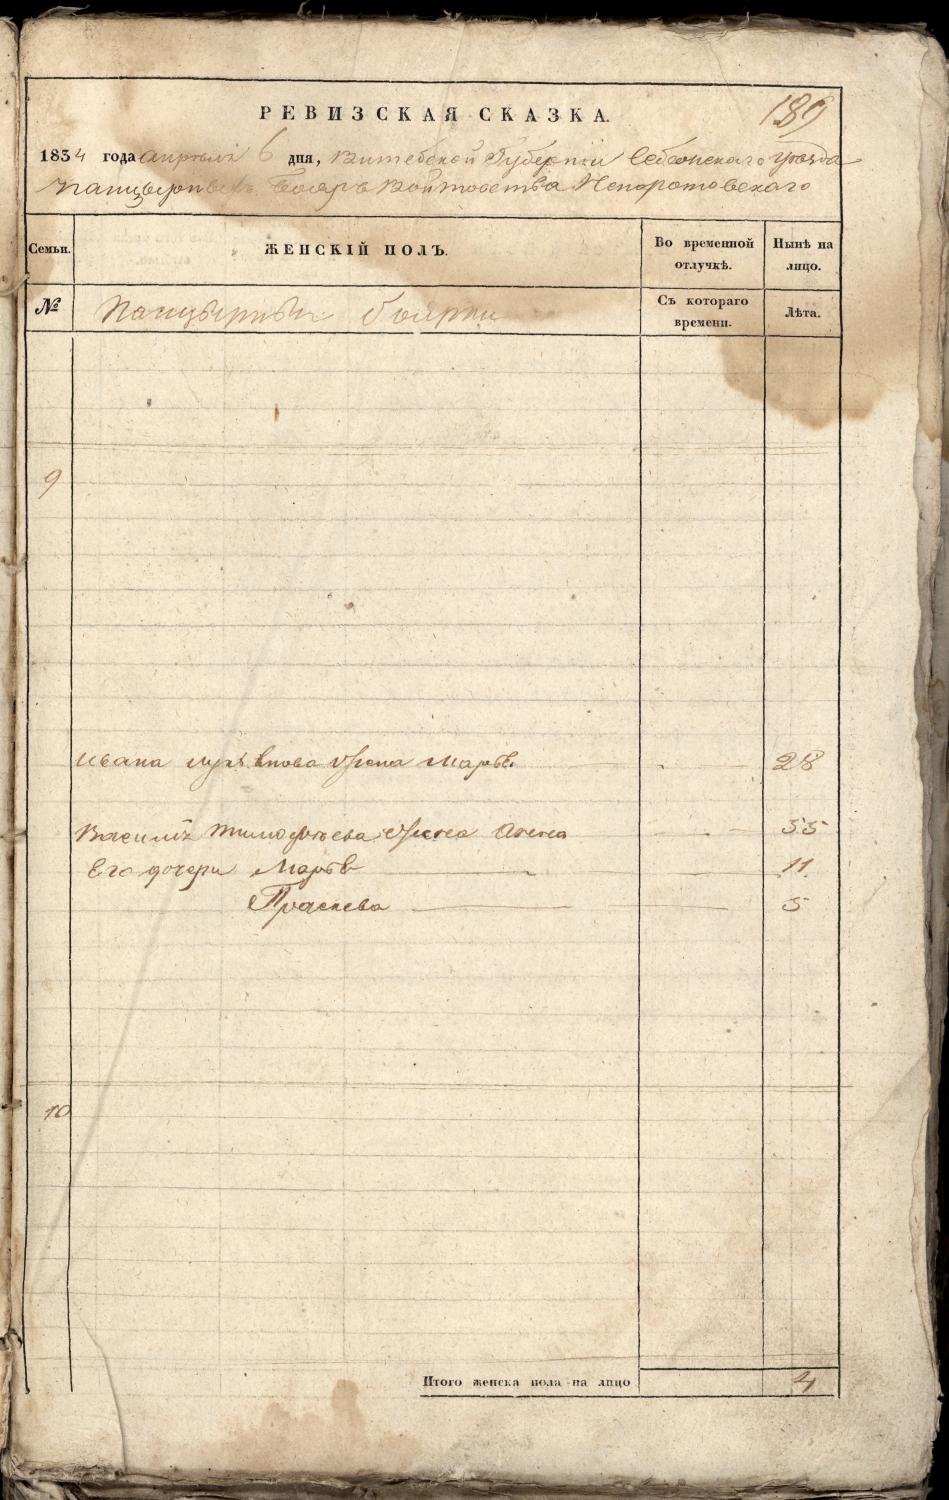 189
РЕВИЗСКАЯ СКАЗКА.
1834 года апреля 6 дня, Витебской Губернии Себежскаго уезда
Панцырныхъ Бояръ Войтовства Непоротовскаго
Семьи. ЖЕНСКІЙ ПОЛЪ. Во временной отлучкѣ. Нынѣ на лицо.
№ Панцырныи боярки Съ котораго времени. Лѣта.
9
Ивана Лукьянова жена Марья 28
Василия Тимофѣева жена Анна 55
Его дочери Марья 11
Прасковя 5
10
Итого женска пола на лицо 4